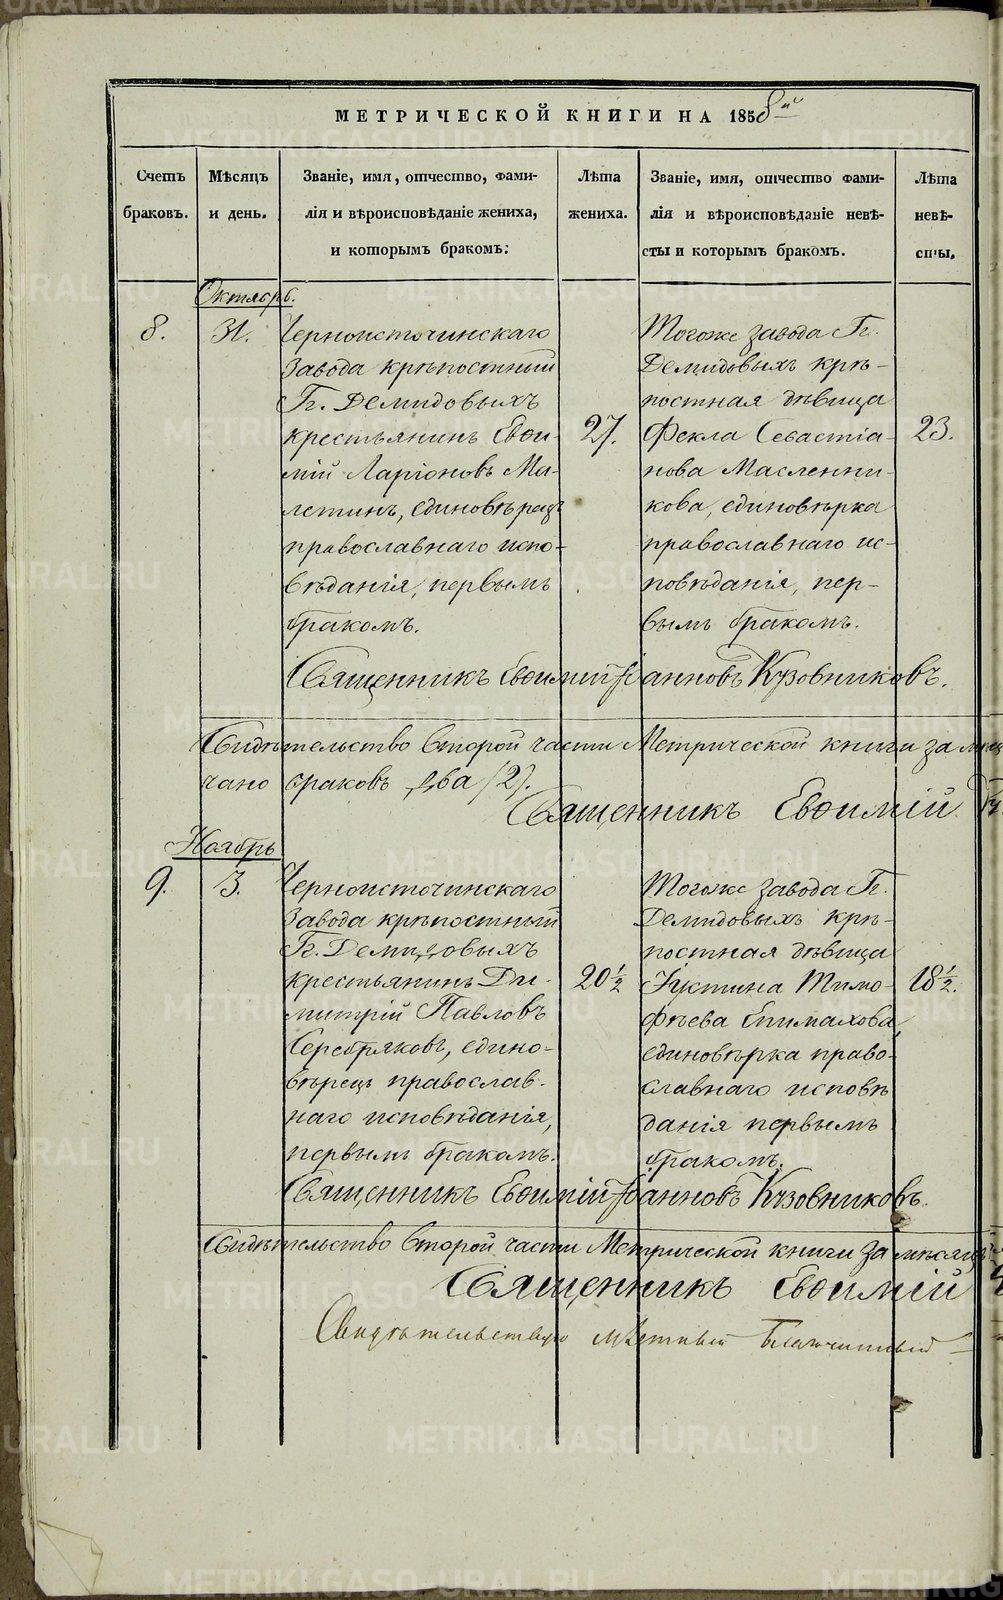 МЕТРИЧЕСКОЙ КНИГИ НА 1858й
Счетъ браковъ.
Мѣсяцъ и день.
Званіе, имя, отчество, фами-
лія и вѣроисповѣданіе жениха,
и которымъ бракомъ:
Лѣта жениха.
Званіе, имя, отчество фами-
лія и вѣроисповѣданіе невѣ-
сты и которымъ бракомъ.
Лѣта невѣ-
сты.
Октябрь.
8.
31.
Черноисточинскаго
завода крѣпостный
Гг. Демидовыхъ
крестьянинъ Евѳи-
мій Ларіоновъ Ма-
летинъ, единовѣрецъ
православнаго испо-
вѣданія, первымъ
бракомъ.
27.
Тогоже завода Гг.
Демидовыхъ крѣ-
постная дѣвица
Фекла Севастіа-
нова Масленни-
кова, единовѣрка
православнаго ис-
повѣданія, пер-
вымъ бракомъ.
23.
Священникъ Евѳимій Іоанновъ Кузовниковъ.
Свидѣтельство второй части Метрической книги за
чано браковъ два (2).
Священникъ Евѳимій
Ноябрь
9.
3.
Черноисточинскаго
завода крѣпостный
Гг. Демидовыхъ
крестьянинъ Ди-
митрій Павловъ
Серебряковъ, едино-
вѣрецъ православ-
наго исповѣданія,
первымъ бракомъ.
20 1/2
Тогоже завода Гг.
Демидовыхъ крѣ-
постная дѣвица
Іустина Тимо-
фѣева Епимахова,
единовѣрка право-
славнаго исповѣ
данія первымъ
бракомъ.
18 1/2.
Священникъ Евѳимій Іоанновъ Кузовниковъ.
Свидѣтельство второй части Метрической книги за мѣсяцъ
Священникъ Евѳимій
Свидѣтельствую мѣстный Благочинный
METRIKI.GASO-URAL.RU